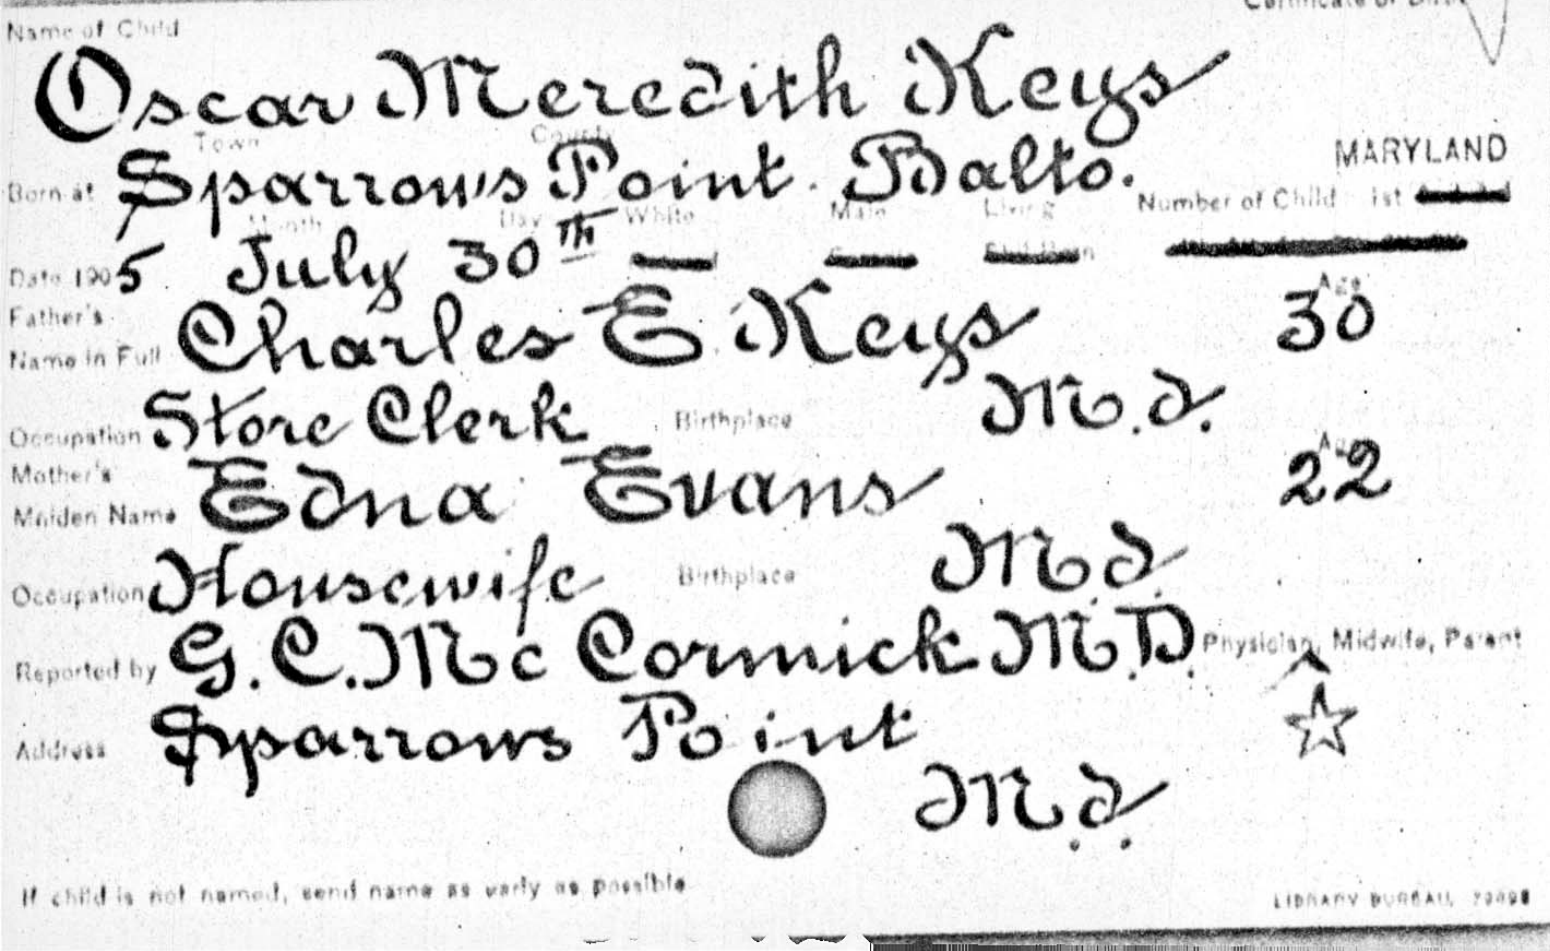 Name of Child
Oscar Meredith Keys
Town County MARYLAND
Born at Sparrows Point. Balto. Number of Child 1st
Month Day White Male Living
Date 1905 July 30th
Father's Age
Name in Full Charles E. Keys 30
Occupation Store Clerk Birthplace M.d.
Mother's Age
Maiden Name Edna Evans 22
Occupation Housewife Birthplace Md
Reported by G. C. Mc Cormick M.D. Physician, Midwife, Parent
Address Sparrows Point
Md.
If child is not named, send name as early as possible
LIBRARY BUREAU,